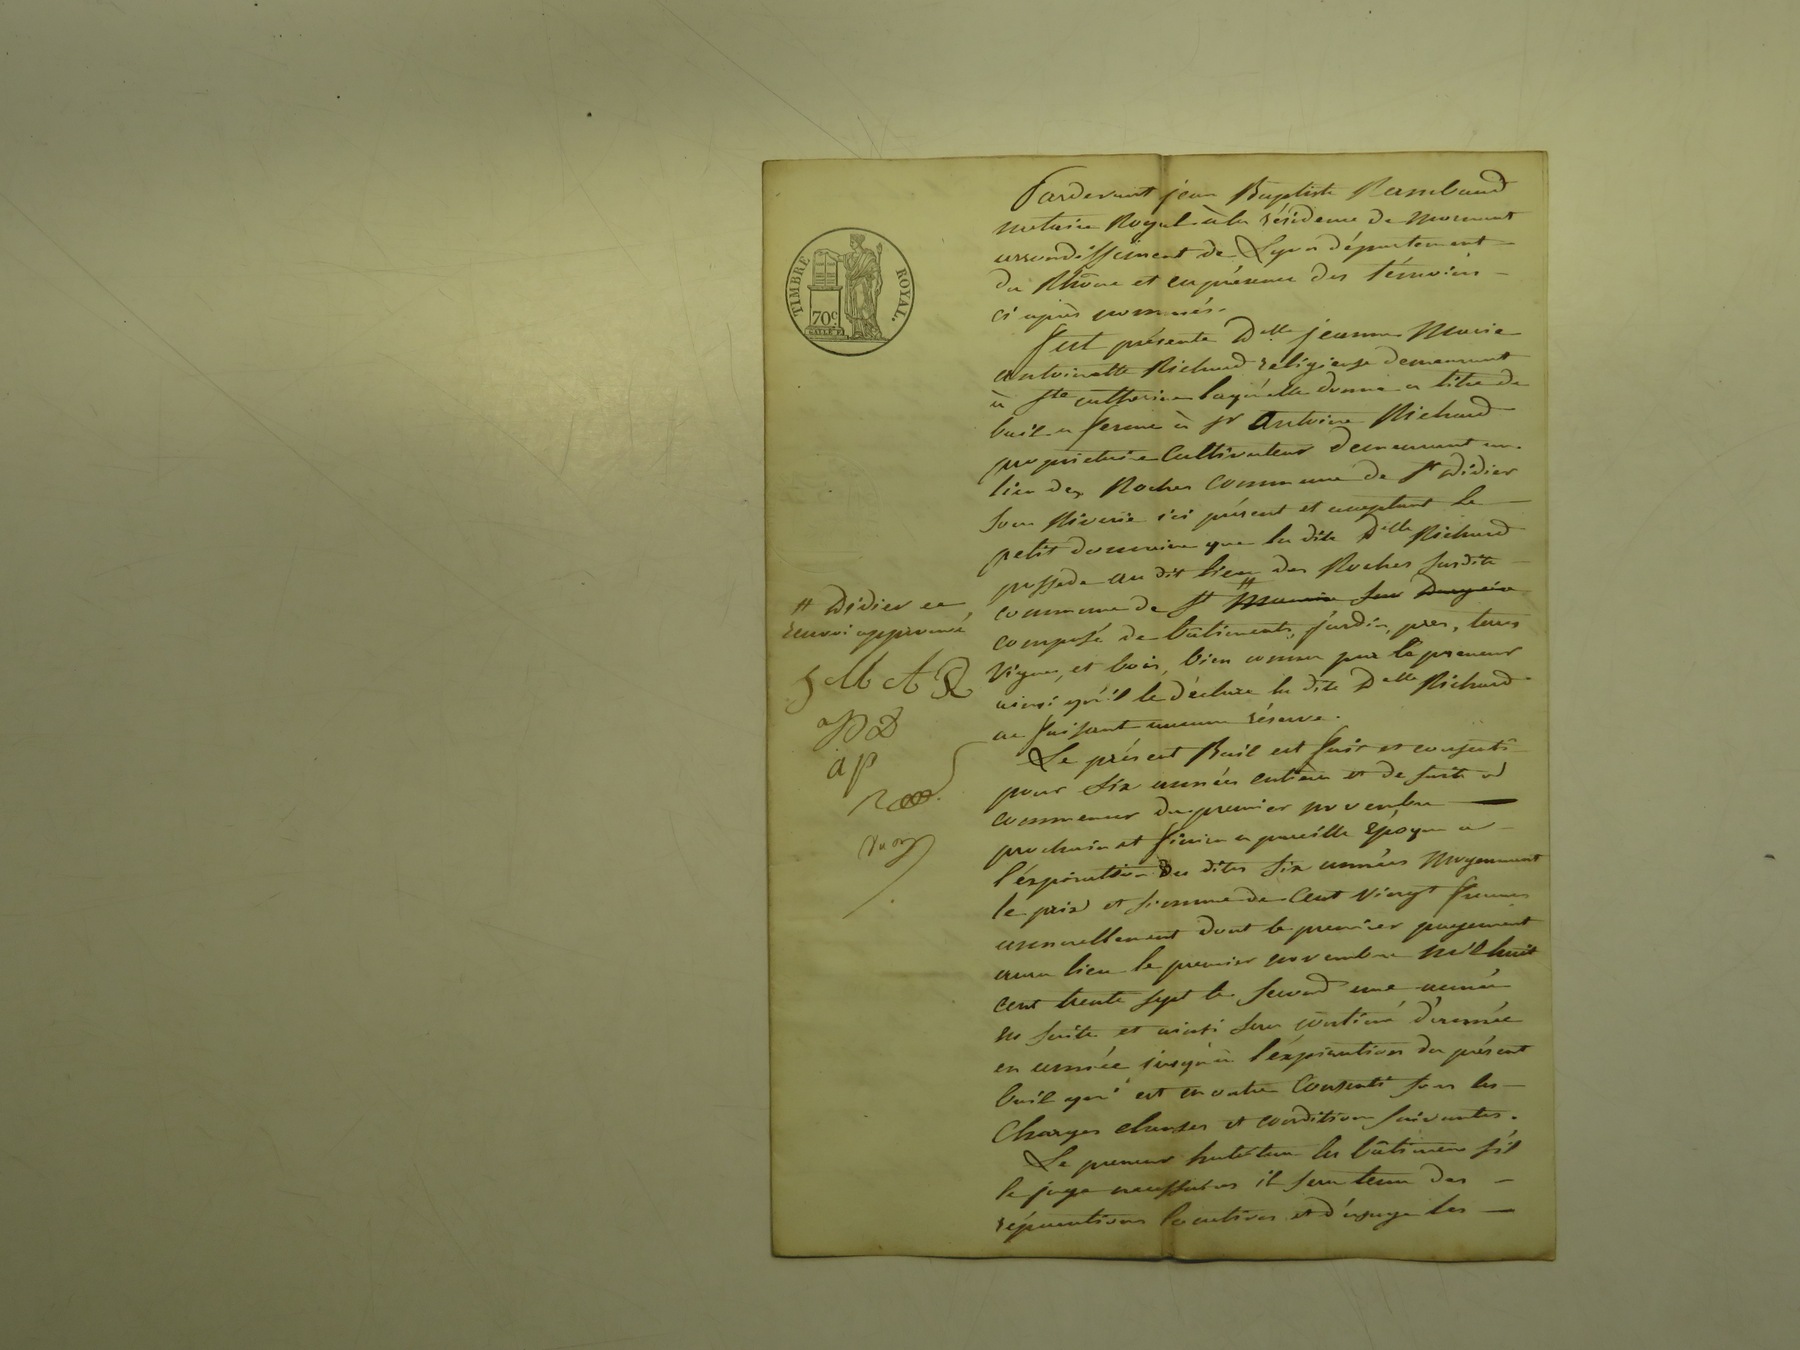 TIMBRE ROYAL.
70c
Pardevant jean Baptiste Rambaud
notaire Royal à la résidence de Mornant
arrondissement de Lyon département
du Rhône et en présence des témoins
ci après nommés.
fut présente Dlle jeanne Marie
antoinette Richard religieuse demeurant
à Ste catherine laquelle donne a titre de
bail a ferme à Sr Antoine Richard
propriétaire Cultivateur demeurant au
lieu des Roches Commune de St Didier
sous Riverie ici présent et acceptant le
petit domaine que la dite Dlle Richard
possede au dit lieu des Roches susdite
commune de St
composé de bâtiments, jardin, prés, terres
vigne, et bois, bien connu par le preneur
ainsi qu'il le déclare la dite Dlle Richard
ne faisant aucune réserve.
Le présent Bail est fait et consenti
pour six années entière et de suite a
commencer du premier novembre
prochain et finir a pareille Epoque a
l'éxpiration des dites six années Moyennant
le prix et somme de Cent vingt francs
annuellement dont le premier payement
aura lieu le premier novembre Mil huit
cent trente sept le second une année
en suite et ainsi sera continué d'année
en année jusqu'à l'éxpiration du présent
bail qui est en outre Consenti sous les
Charges clauses et condition suivantes.
Le preneur habitera les bâtimens s'il
le juge necessaires il sera tenu des
réparations locatives et d'usage les
St Didier
renvoi approuvé
J M A R
a p